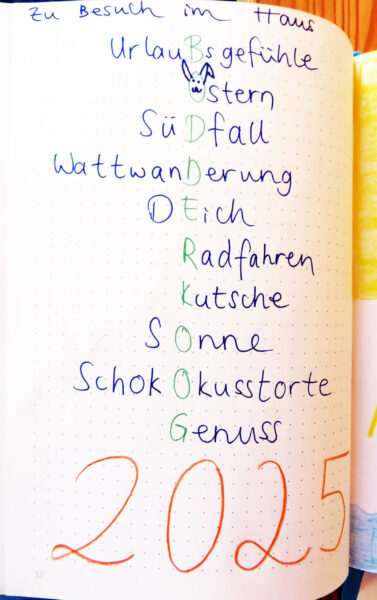 Zu Besuch im Haus
UrlauBsgefühle
Ostern
SüDfall
WattwanDerung
DEich
Radfahren
Kutsche
SOnne
SchokOkusstorte
Genuss
2025
32